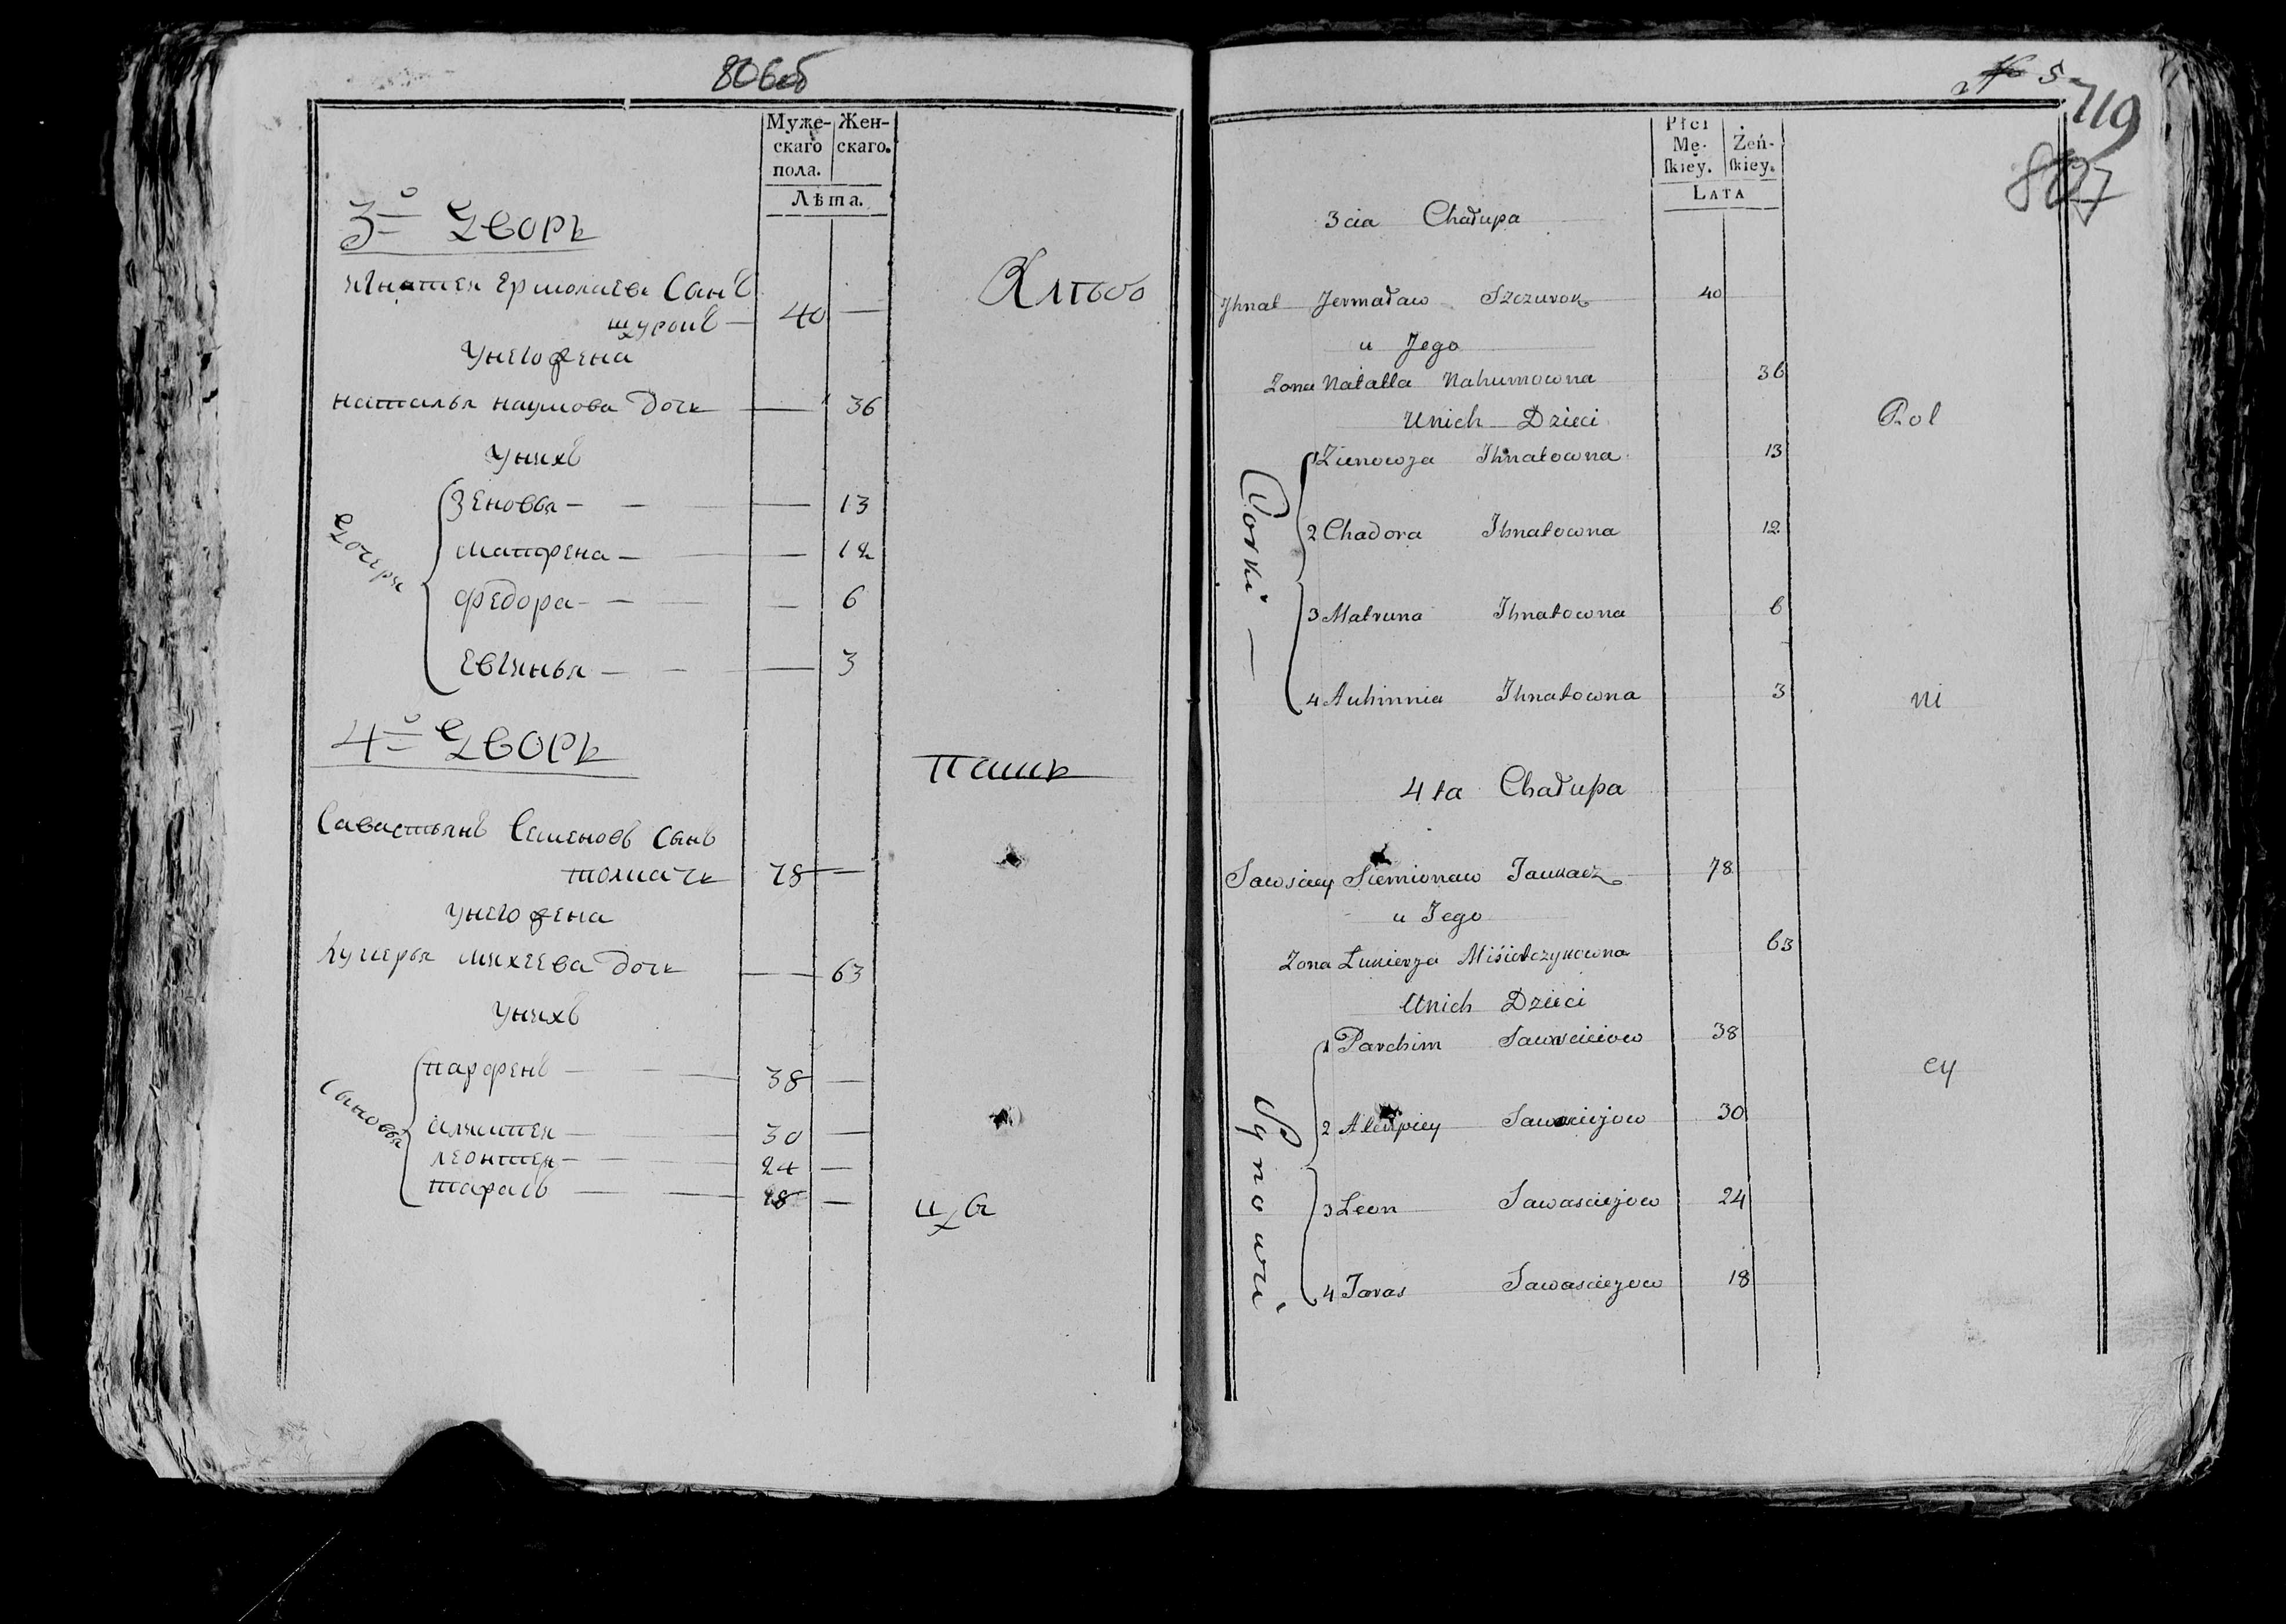 806об
Муже- Жен-
скаго скаго.
пола.
Лѣта.
3й Дворъ
Игнатеи Ермолаевъ Сынъ
щурокъ — 40 —
Унего жена
наталья наумова дочь — 36
Унихъ
Дочери
Зеновья — — — 13
матфена — — 12
федора — — — 6
Евгинья — — — 3
4й Дворъ
пашъ
Савастьянъ Семеновъ Сынъ
толкачъ 78 —
Унего жена
Лукерья михеева дочь — 63
Унихъ
Сыновья
парфенъ — — 38 —
30 —
леонтеи — — 24 —
тарасъ — — 18 —
№ 5
719
807
Płci
Mę- Żeń-
skiey. skiey.
LATA
3cia Chałupa
Jhnat Jermaław Szczurok 40
u Jego
Zona Natalla Nahumowna 36
Unich Dzieci
Rol
Corki —
1 Zienowja Ihnatowna 13
2 Chadora Ihnatowna 12
3 Matruna Ihnatowna 6
4 Auhinnia Ihnatowna 3
ni
4ta Chałupa
Sawsciey Siemionaw Taukacz 78
u Jego
Zona Lukierja 63
Unich Dzieci
Synowie
1 Parchim Sawasciejow 38
cy
2 Alempiey Sawasciejow 30
3 Leon Sawasciejow 24
4 Taras Sawasciejow 18